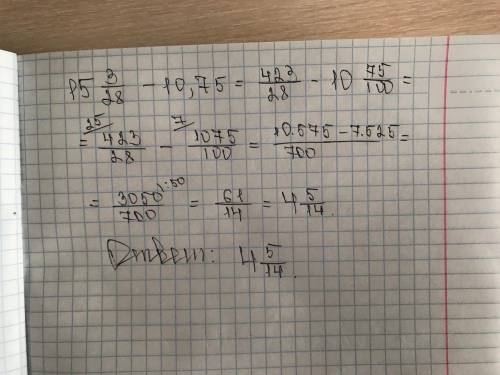 15 3/28 − 10,75 = 423/28 − 10 75/100 =
= 25/ 423/28 − 7/ 1075/100 = 10.575−7.525/700 =
= 3050/700 /:50 = 61/14 = 4 5/14.
Ответ: 4 5/14.